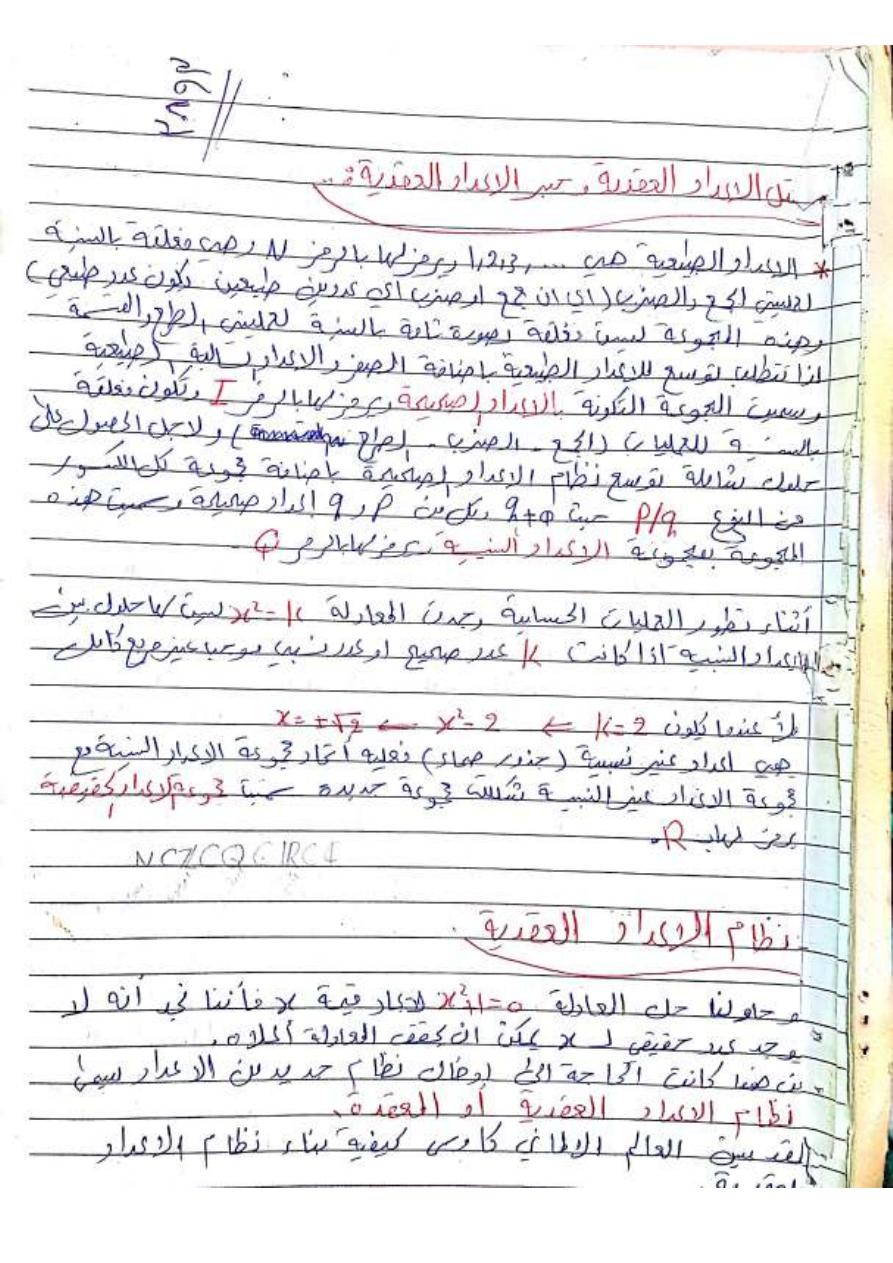 الاعداد العقدية وجبر الاعداد العقدية :.
* الاعداد الطبيعية هي ....,1,2,3 ويرمز لها بالرمز N وهي مغلقة بالنسبة
لعمليتي الجمع والضرب (اي ان جمع او ضرب اي عددين طبيعين يكون عدد طبيعي)
وهذه المجموعة ليست مغلقة بصورة تامة بالنسبة لعمليتي الطرح والقسمة
لذا تتطلب توسيع للاعداد الطبيعية باضافة الصفر والاعداد السالبة الطبيعية
وسميت المجموعة المتكونة بالاعداد الصحيحة ويرمز لها بالرمز I وتكون مغلقة
بالنسبة للعمليات (الجمع - الضرب - الطرح) ولاجل الحصول على
حلول شاملة توسع نظام الاعداد الصحيحة باضافة مجموعة كل الكسور
من النوع P/q حيث q≠0 وكل من P و q اعداد صحيحة وسميت هذه
المجموعة بمجموعة الاعداد النسبية ويرمز لها بالرمز Q.
أثناء تطور العمليات الحسابية وجدت المعادلة x²=k ليست لها حلول بين
الاعداد النسبية اذا كانت k عدد صحيح او عدد نسبي موجب غير مربع كامل
مثلاً عندما يكون k=2 ← x²=2 ← x=±√2
هي اعداد غير نسبية (جذور صماء) فعليه اتحاد مجموعة الاعداد النسبية مع
مجموعة الاعداد غير النسبية شكلت مجموعة جديدة سميت مجموعة الاعداد الحقيقية
يرمز لها بـ R.
N⊂Z⊂Q⊂IR⊂
نظام الاعداد العقدية
حاولنا حل المعادلة x²+1=0 لايجاد قيمة x فأننا نجد أنه لا
يوجد عدد حقيقي لـ x يمكن ان يحقق المعادلة أعلاه.
من هنا كانت الحاجة الى ادخال نظام جديد من الاعداد يسمى
نظام الاعداد العقدية أو المعقدة.
لقد بين العالم الالماني كاوس كيفية بناء نظام الاعداد